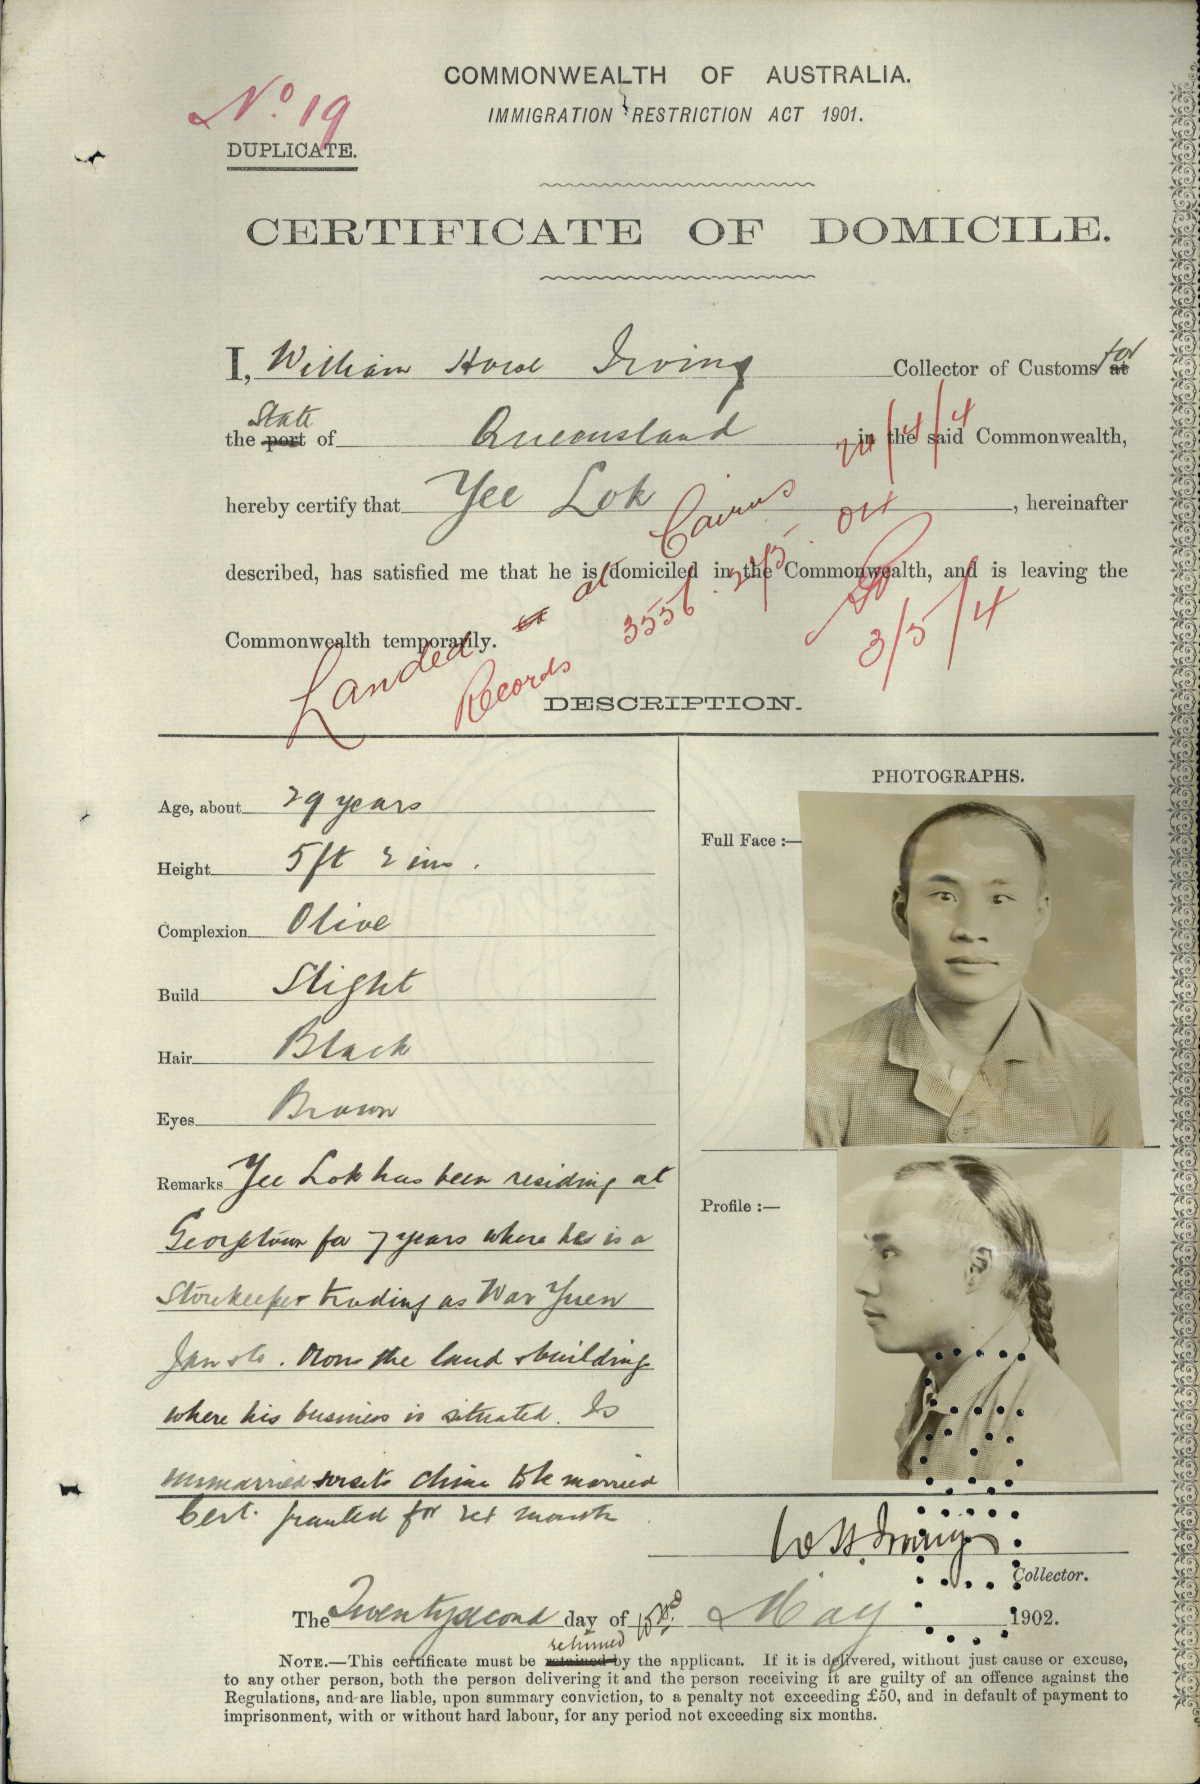 COMMONWEALTH OF AUSTRALIA.
IMMIGRATION RESTRICTION ACT 1901.
No. 19
DUPLICATE.
CERTIFICATE OF DOMICILE.
I, William Howe Irving Collector of Customs at for
the port State of Queensland in the said Commonwealth,
24/4/4
hereby certify that Yee Lok, hereinafter
described, has satisfied me that he is domiciled in the Commonwealth, and is leaving the
Commonwealth temporarily.
Landed at Cairns
Records 3556
3/5/4
DESCRIPTION.
Age, about 29 years
Height 5ft 2 ins.
Complexion Olive
Build Slight
Hair Black
Eyes Brown
Remarks Yee Lok has been residing at
Georgetown for 7 years where he is a
Storekeeper trading as War Yuen
Jan & Co. Owns the land & building
where his business is situated. Is
unmarried China to be married
Cert. granted for months
PHOTOGRAPHS.
Full Face :—
Profile :—
W. H. Irving
Collector.
The Twentysecond day of May 1902.
NOTE.—This certificate must be retained returned by the applicant. If it is delivered, without just cause or excuse,
to any other person, both the person delivering it and the person receiving it are guilty of an offence against the
Regulations, and are liable, upon summary conviction, to a penalty not exceeding £50, and in default of payment to
imprisonment, with or without hard labour, for any period not exceeding six months.